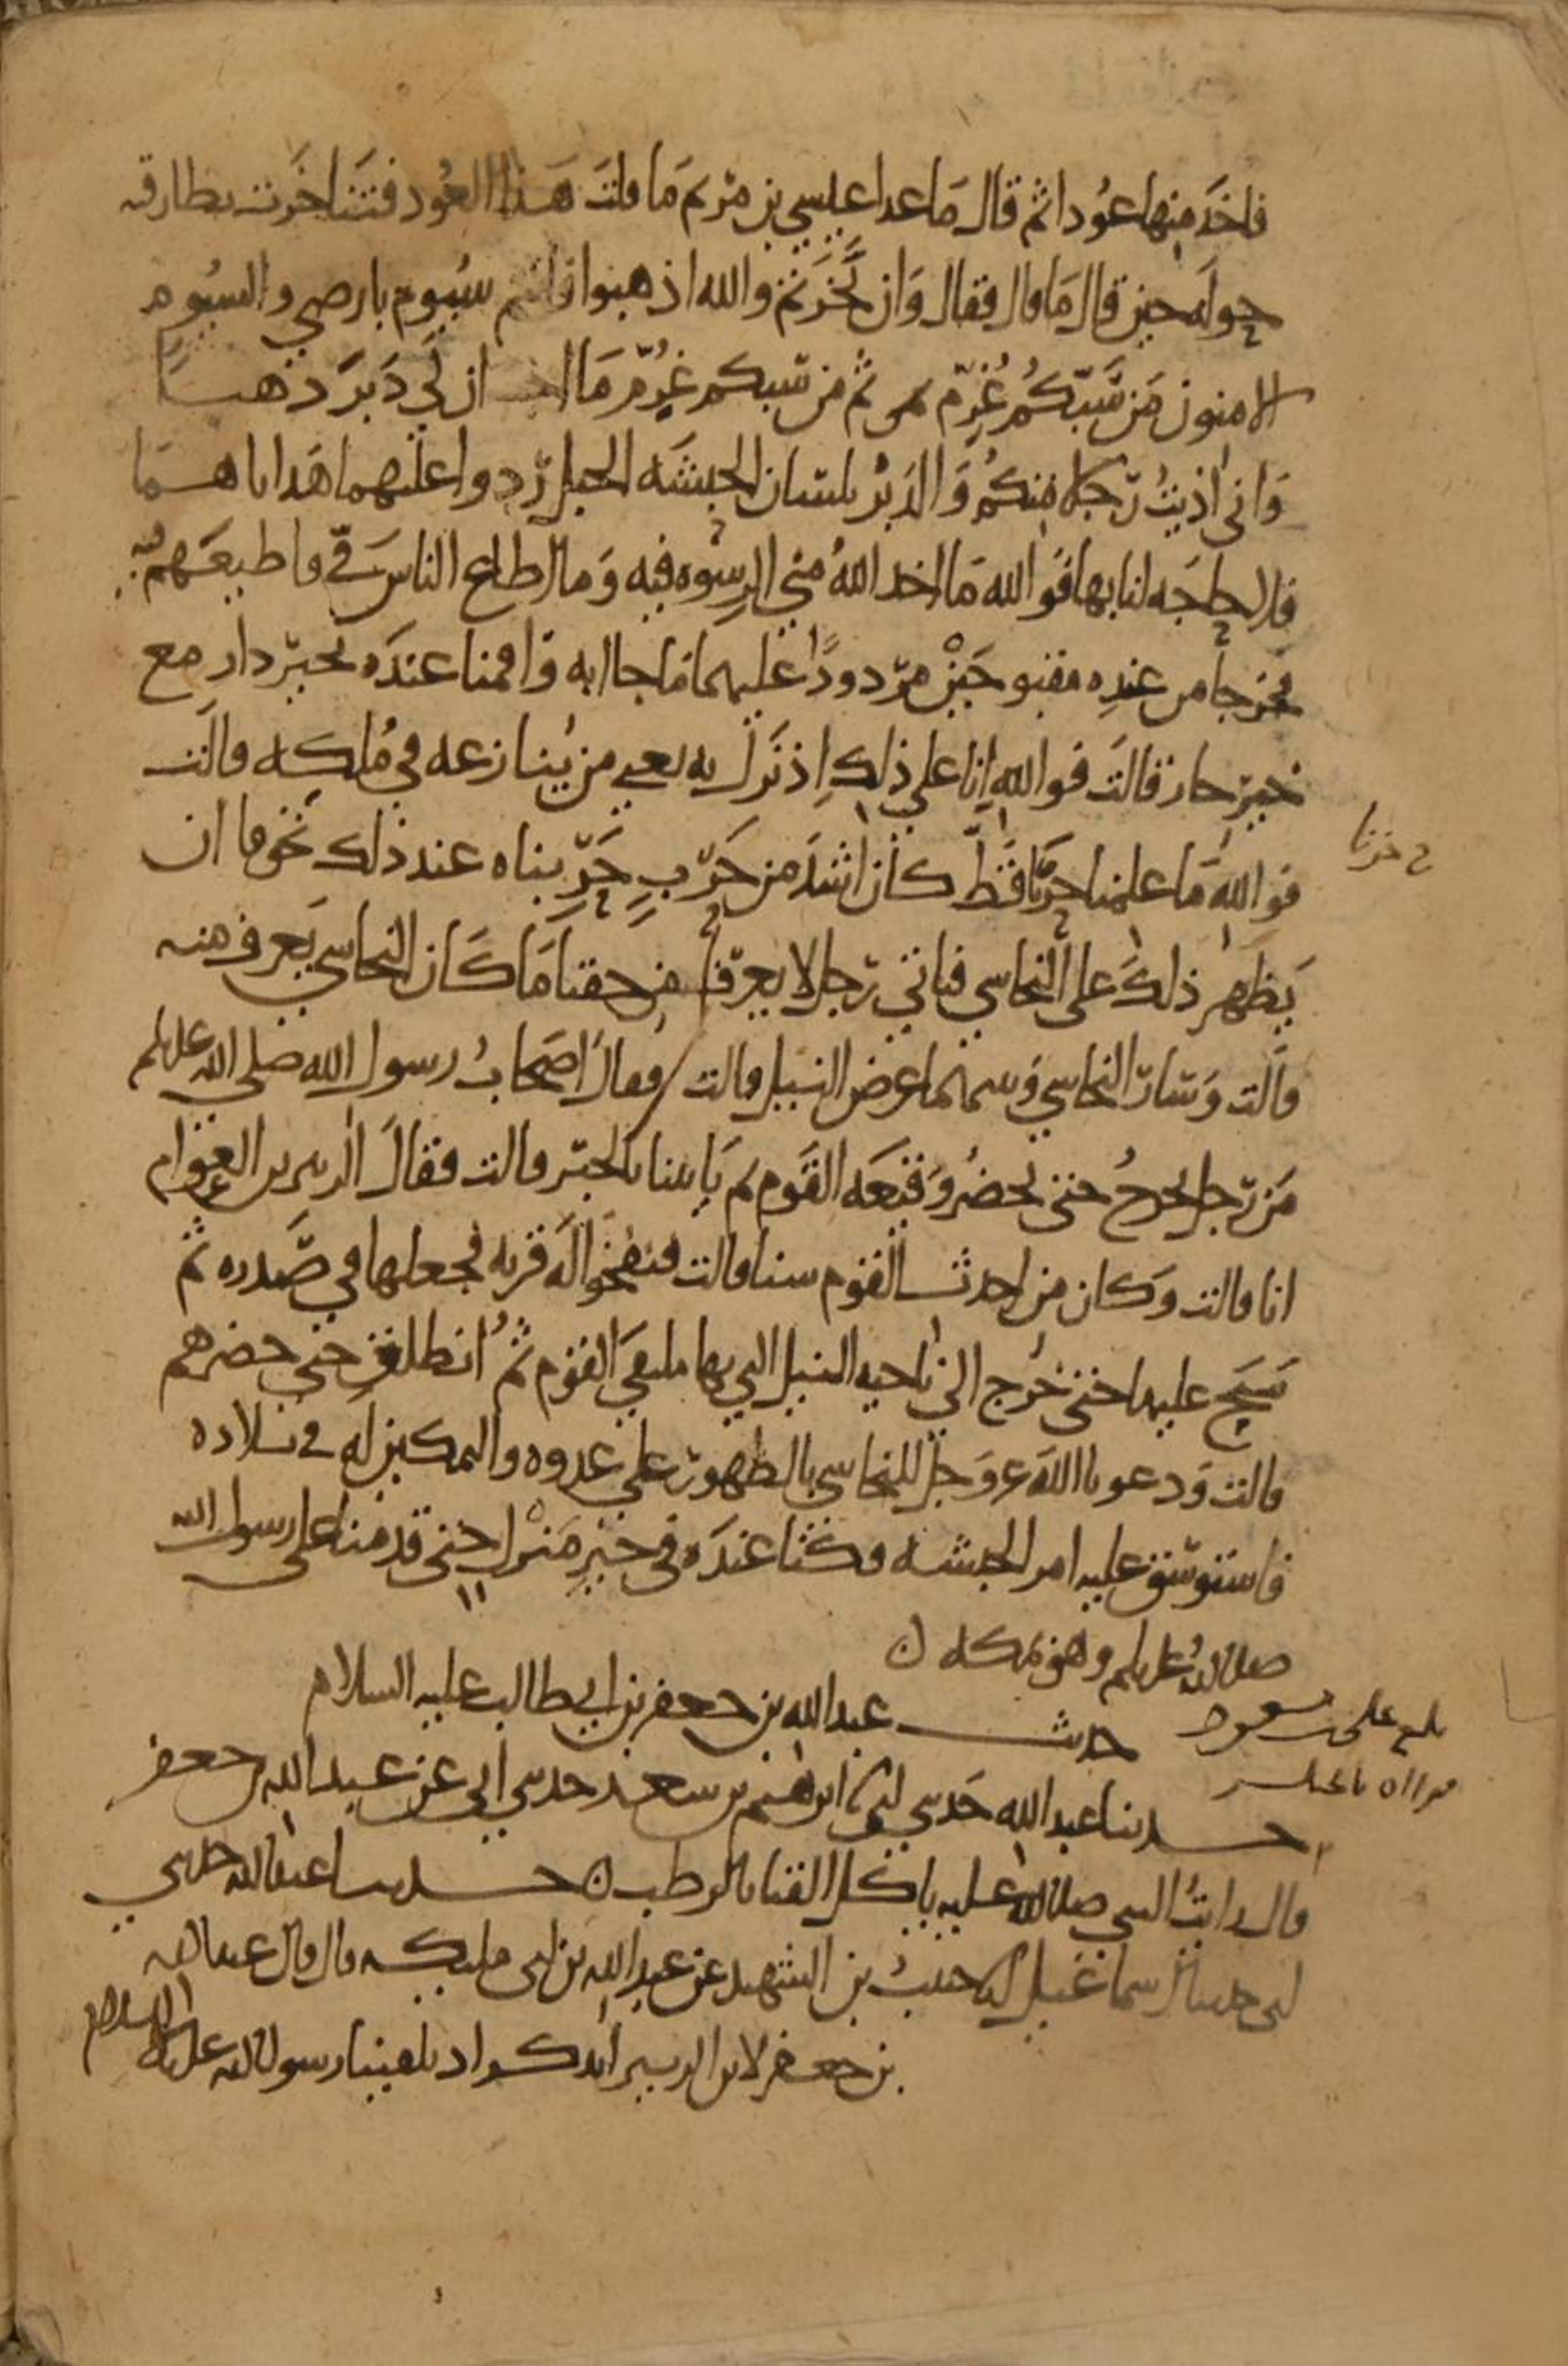 فاخذ منها عودا ثم قال ما عدا عيسي بن مريم ما قلت هذا العود فتناخرت بطارقته
حوله حين قال ما قال فقال وان نخرتم والله اذهبوا فانتم سيوم بارضي والسيوم
الامنون من سبكم غرم ثم من سبكم غرم ما احب ان لي دبر ذهبا
واني اذيت رجلا منكم والدبر بلسان الحبشه الجبل ردوا عليهما هداياهما
فلا حاجه لنا بها فوالله ما اخذ الله مني الرشوه فيه وما اطاع الناس في فاطيعهم فيه
فخرجا من عنده مقبوحين مردودا عليهما ما جاا به واقمنا عنده بخير دار مع
خير جار قالت فوالله انا علي ذلك اذ نزل به يعني من ينازعه في ملكه قالت
فوالله ما علمنا حربا قط كان اشد من حرب حربناه عند ذلك تخوفا ان
ح حزنا
يظهر ذلك على النجاسي فياتي رجل لا يعرف من حقنا ما كان النجاسي يعرف منه
قالت وسار النجاسي وبينهما عرض النيل قالت فقال اصحاب رسول الله صلى الله عليه وسلم
من رجل يخرج حتى يحضر وقعه القوم ثم ياتينا بالخبر قالت فقال الزبير بن العوام
انا قالت وكان من احدث القوم سنا قالت فنفخوا له قربه فجعلها في صدره ثم
سبح عليها حتى خرج الى ناحيه النيل التي بها ملتقي القوم ثم انطلق حتى حضرهم
قالت ودعونا الله عز وجل للنجاسي بالظهور على عدوه والتمكين له في بلاده
فاستوسق عليه امر الحبشه فكنا عنده في خير منزل حتى قدمنا على رسول الله
صلى الله عليه وسلم وهو بمكه ن
حديث عبدالله بن جعفر بن ابي طالب عليه السلام
بلغ علي بن مسعود
حدثنا عبدالله حدثني ابي نا ابرهيم بن سعد حدثني ابي عن عبدالله بن جعفر
قال رايت النبي صلى الله عليه ياكل القثا بالرطب ن حدثنا عبدالله حدثني
ابي حدثنا اسماعيل انا حبيب بن الشهيد عن عبدالله بن ابي مليكه قال قال عبدالله
بن جعفر لابن الزبير اتذكر اذ تلقينا رسول الله عليه السلام